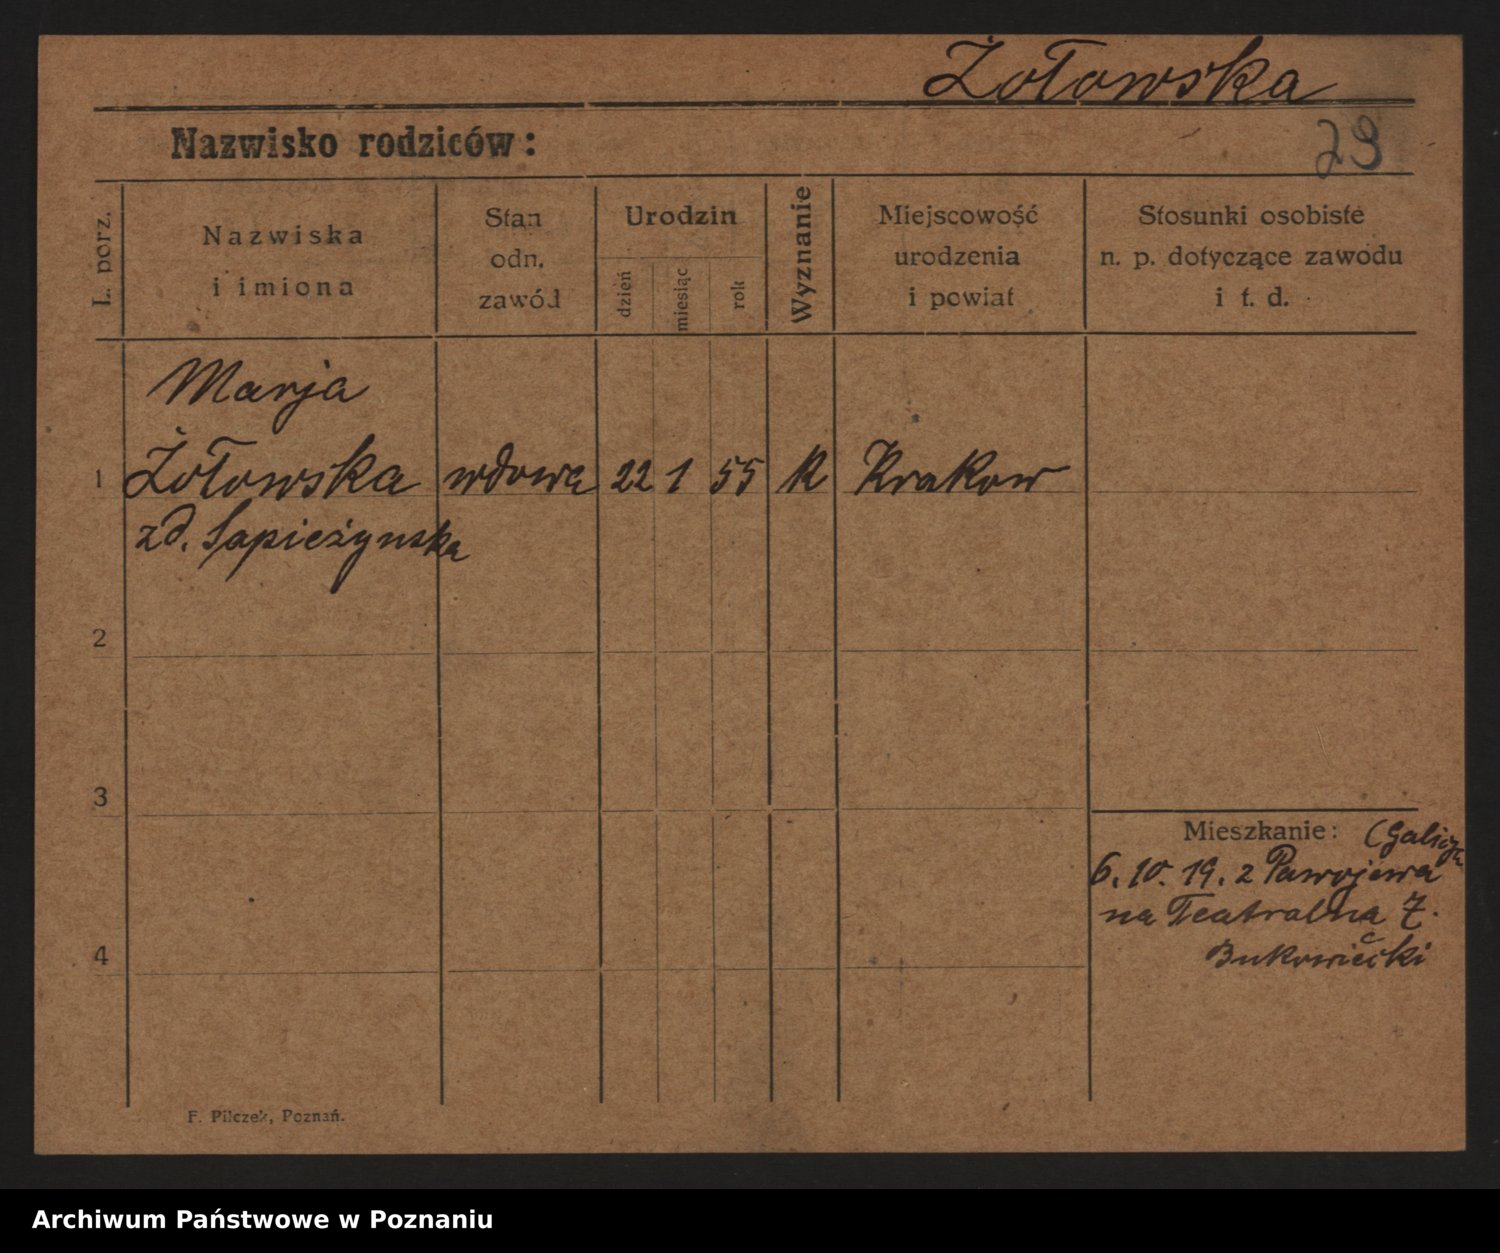 Żołowska
Nazwisko rodziców:
29
L. porz.
Nazwiska
i imiona
Stan
odn.
zawód
Urodzin
dzień
miesiąc
rok
Wyznanie
Miejscowość
urodzenia
i powiat
Stosunki osobiste
n. p. dotyczące zawodu
i t. d.
Marja
1 Żołowska wdowa 22 1 55 K Krakow
zd. Sapieżynska
2
3
Mieszkanie: (Galicya
6. 10. 19. z
na Teatralna 7.
4
Bukowiecki
F. Pilczek, Poznań.
Archiwum Państwowe w Poznaniu